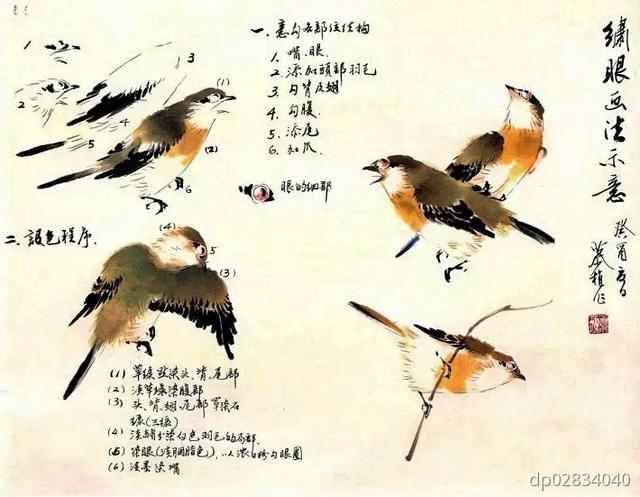 繡眼画法示意
癸酉夏日
作
一、意勾各部位结构
1. 嘴、眼
2. 添加頭部羽毛
3 勾背及翅
4. 勾腹
5. 添尾
6. 加爪
眼的细部
1
2
3
4
5
(1)
(2)
6
二、設色程序.
(4)
5
(3)
(1) 草绿、染头、背、尾部
(2) 淡草绿染腹部
(3) 头、背、翅、尾部罩染石
绿(三绿)
(4) 淡赭分染白色羽毛的局部.
(5) 染眼(淡胭脂色),以浓白粉勾眼圈
(6) 淡墨染嘴
dp02834040